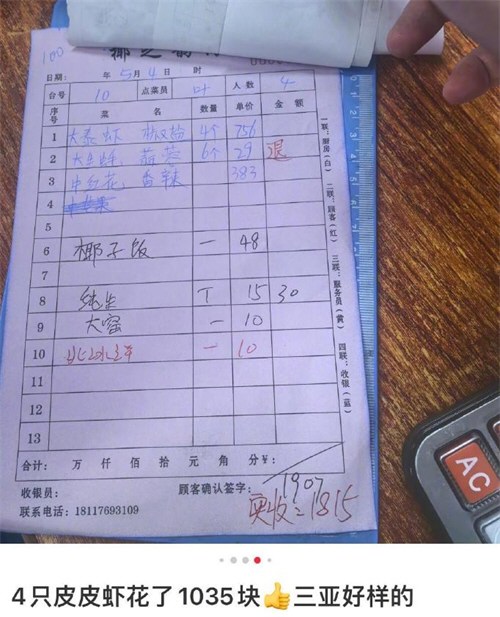 100
日期： 年 5 月 4 日 时
台号 10 点菜员 叶 人数 4
序号 菜名 数量 单价 金额
1 大泰虾 椒盐 4个 756
2 大生蚝，蒜蓉 6个 29 退
3 中红花，香辣 383
4
5
6 椰子饭 一 48
7
8 纯生 T 15 30
9 大窑 一 10
10 一 10
11
12
13
合计： 万 仟 佰 拾 元 角 分￥：
1907
收银员： 顾客确认签字：
实收=1815
联系电话：18117693109
一联：厨房（白） 二联：顾客（红） 三联：服务员（黄） 四联：收银（蓝）
AC
4只皮皮虾花了1035块👍三亚好样的